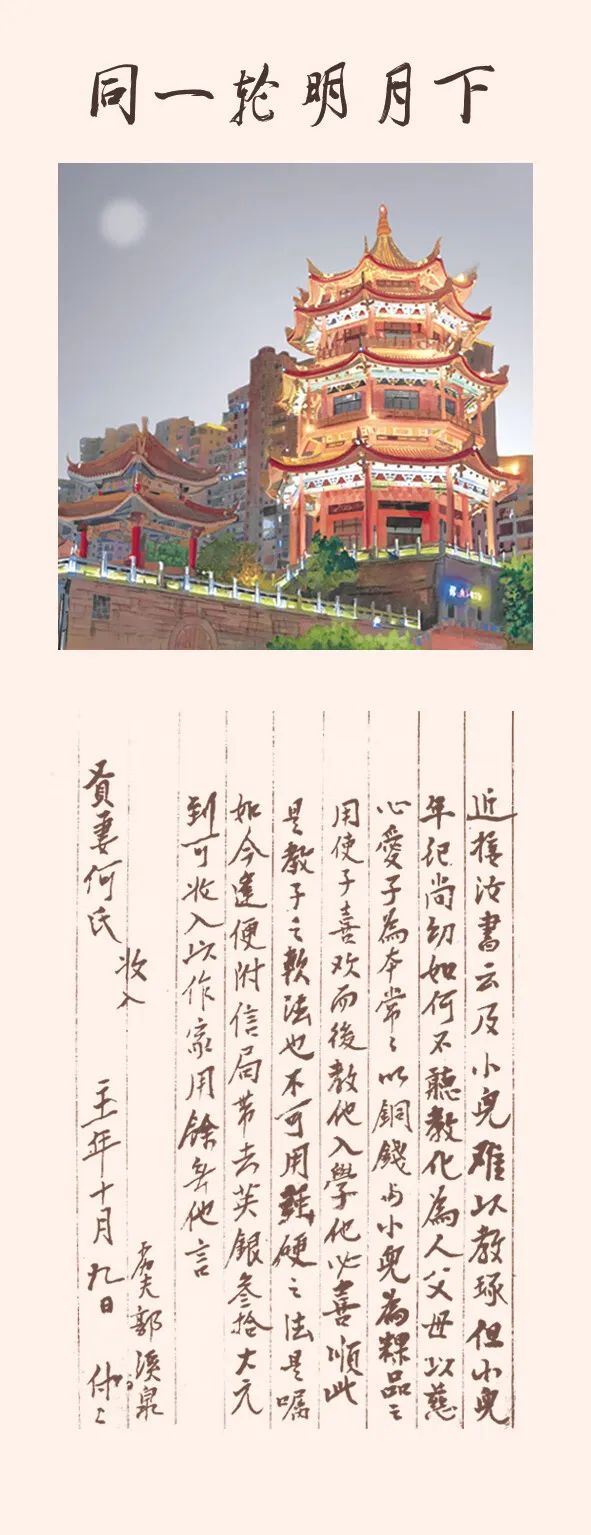 同一轮明月下
近接汝书云及小兒难以教琢但小兒
年纪尚幼如何不聽教化為人父母以慈
心愛子為本常々以銅錢与小兒為粿品之
用使子喜欢而後教他入學他必喜順此
是教子之軟法也不可用强硬之法是嘱
如今逢便附信局带去英銀叁拾大元
到可收入以作家用餘无他言
愚夫郭溪泉
贤妻何氏 收入
壬年十月九日 付